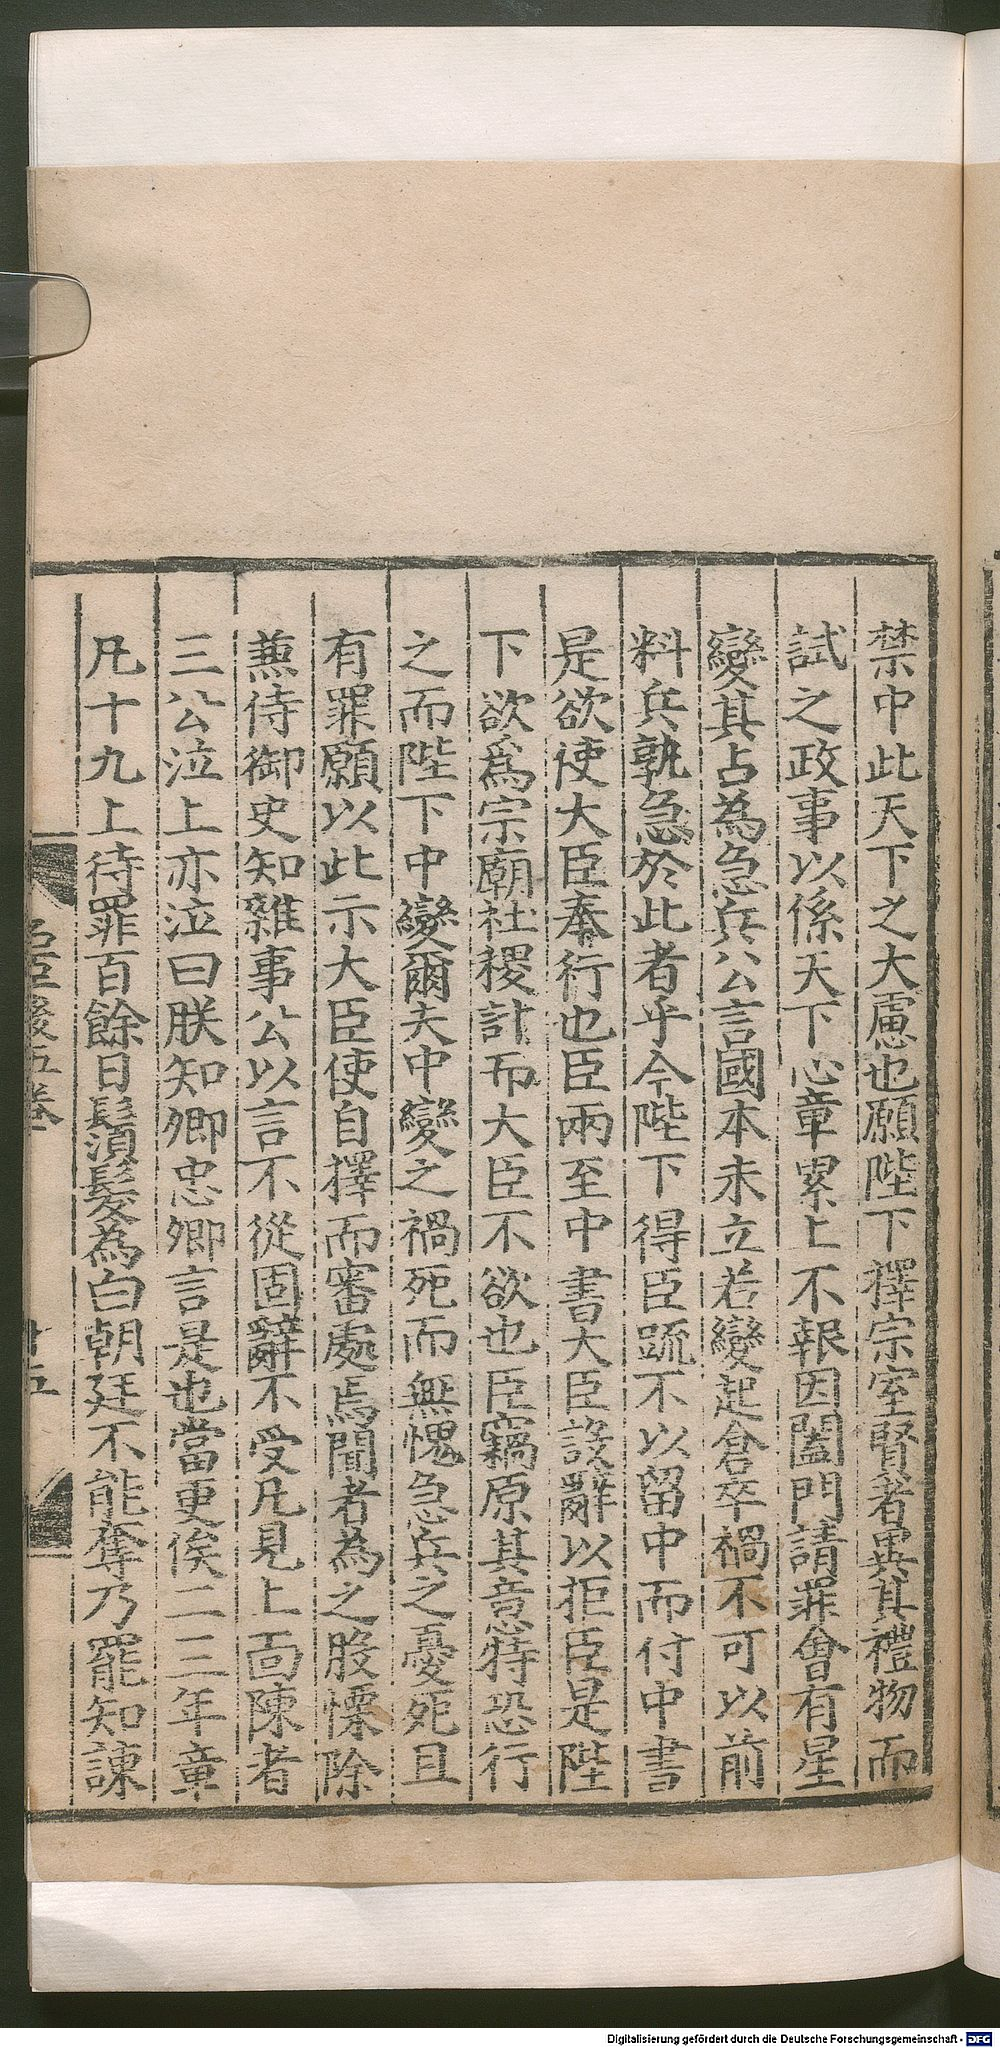 禁中此天下之大慮也願陛下擇宗室賢者異其禮物而
試之政事以係天下心章累上不報因闔門請罪會有星
變其占為急兵公言國本未立若變起倉卒禍不可以前
料兵孰急於此者乎今陛下得臣疏不以留中而付中書
是欲使大臣奉行也臣兩至中書大臣設辭以拒臣是陛
下欲爲宗廟社稷計而大臣不欲也臣竊原其意特恐行
之而陛下中變爾夫中變之禍死而無愧急兵之憂死且
有罪願以此示大臣使自擇而審處焉聞者為之股慄除
兼侍御史知雜事公以言不從固辭不受凡見上面陳者
三公泣上亦泣曰朕知卿忠卿言是也當更俟二三年章
凡十九上待罪百餘日鬚髮為白朝廷不能奪乃罷知諫
後五卷
十五
Digitalisierung gefördert durch die Deutsche Forschungsgemeinschaft - DFG